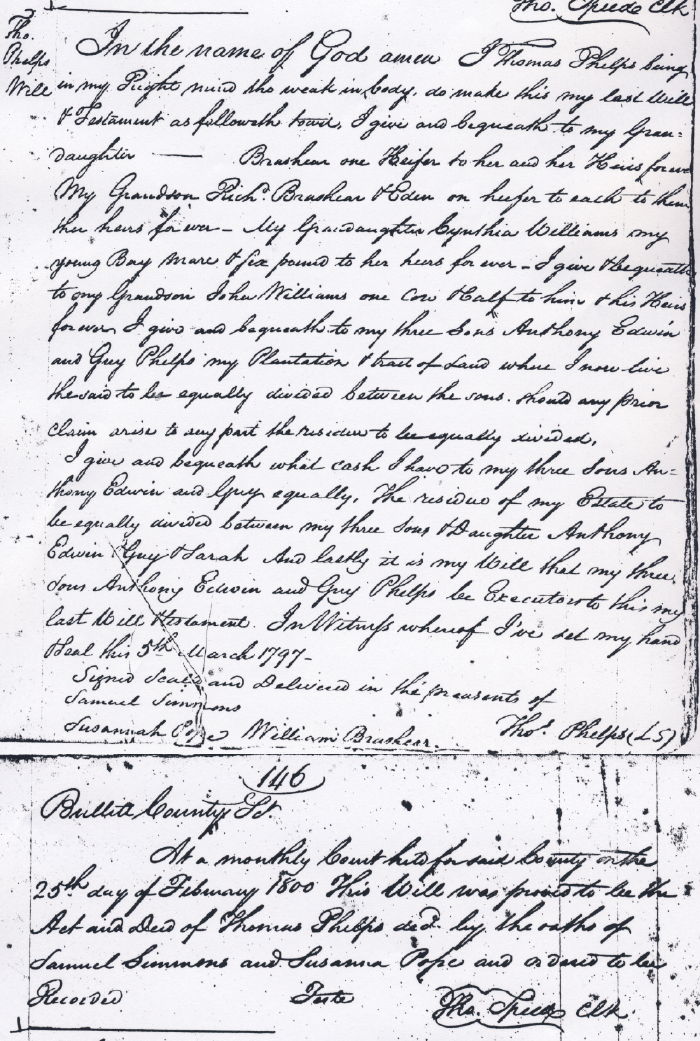 Tho. Speed Clk
Tho.
Phelps
Will
In the name of God amen I Thomas Phelps being
in my Right mind tho weak in body, do make this my last Will
& Testament as followeth towd, I give and bequeath to my Gran=
daughter —— Brashear one Heifer to her and her Heirs forever
My Grandson Richd. Brashear & Eden on heifer to each to them
ther heirs for ever – My Grandaughter Cynthia Williams my
young Bay mare & six pound to her heirs for ever – I give & bequeath
to my Grandson John Williams one Cow & Calf to him & his Heirs
forever I give and bequeath to my three Sons Anthony Edwin
and Guy Phelps my Plantation & tract of Land where I now live
the said to be equally divided between the sons. Should any prior
claim arise to any part the residue to be equally divided,
I give and bequeath what cash I have to my three Sons An=
thony Edwin and Guy equally, The residue of my Estate to
be equally divided between my three Sons & Daughter Anthony
Edwin Guy & Sarah And lastly it is my Will that my three
Sons Anthony Edwin and Guy Phelps be Executors to this my
last Will & testament. In Witness whereof I've set my hand
& Seal this 5th March 1797–
Signed Seald and Delivered in the presents of
Samuel Simmons
Susannah Pope William Brashear. Thos. Phelps (LS)
146
Bullitt County Sct.
At a monthly Court held for said County on the
25th day of February 1800 This Will was proved to be the
Act and Deed of Thomas Phelps decd. by the oaths of
Samuel Simmons and Susanna Pope and ordered to be
Recorded Teste Tho. Speed Clk.